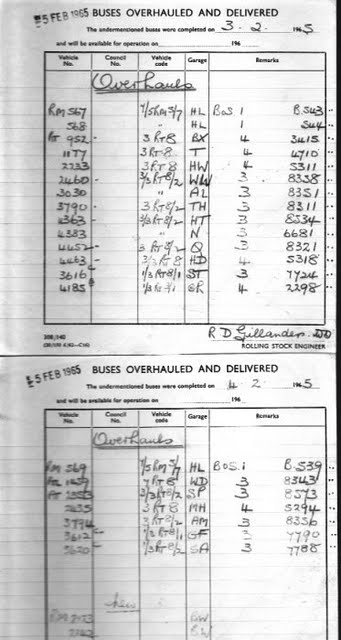 5 FEB 1965 BUSES OVERHAULED AND DELIVERED
The undermentioned buses were completed on 3 . 2 . 1965
and will be available for operation on 196
Vehicle No. Council No. Vehicle code Garage Remarks
Overhauls
RM 567 7/5RM5/7 HL BOS. 1 B.543
568 " HL 1 544
RT 952 3RT8 BX 4 3415
1177 3RT8 T 4 4710
2233 3RT8 HW 4 5311
2460 3/3RT8/2 WW 3 8338
3030 " AL 3 8351
3790 3RT8/2 TH 3 8311
4363 3/3RT8/2 HT 3 8534
4383 " N 3 6681
4452 3RT8/2 Q 3 8321
4463 3/3RT8 HD 4 5318
3616 1/3RT8/1 ST 3 7724
4185 GR 4 2298
R D Gillanders
ROLLING STOCK ENGINEER
5 FEB 1965 BUSES OVERHAULED AND DELIVERED
The undermentioned buses were completed on 4 2 1965
and will be available for operation on 196
Vehicle No. Council No. Vehicle code Garage Remarks
Overhauls
RM 569 7/5RM5/7 HL BOS. 1 B.539
7RT8 WD 3 8343
3/3RT8/2 SP 3 8573
3RT8 MH 4 5294
3794 3RT8/2 AM 3 8356
3612 GF 3 7790
3620 1/3RT8/2 SA 3 7788
new